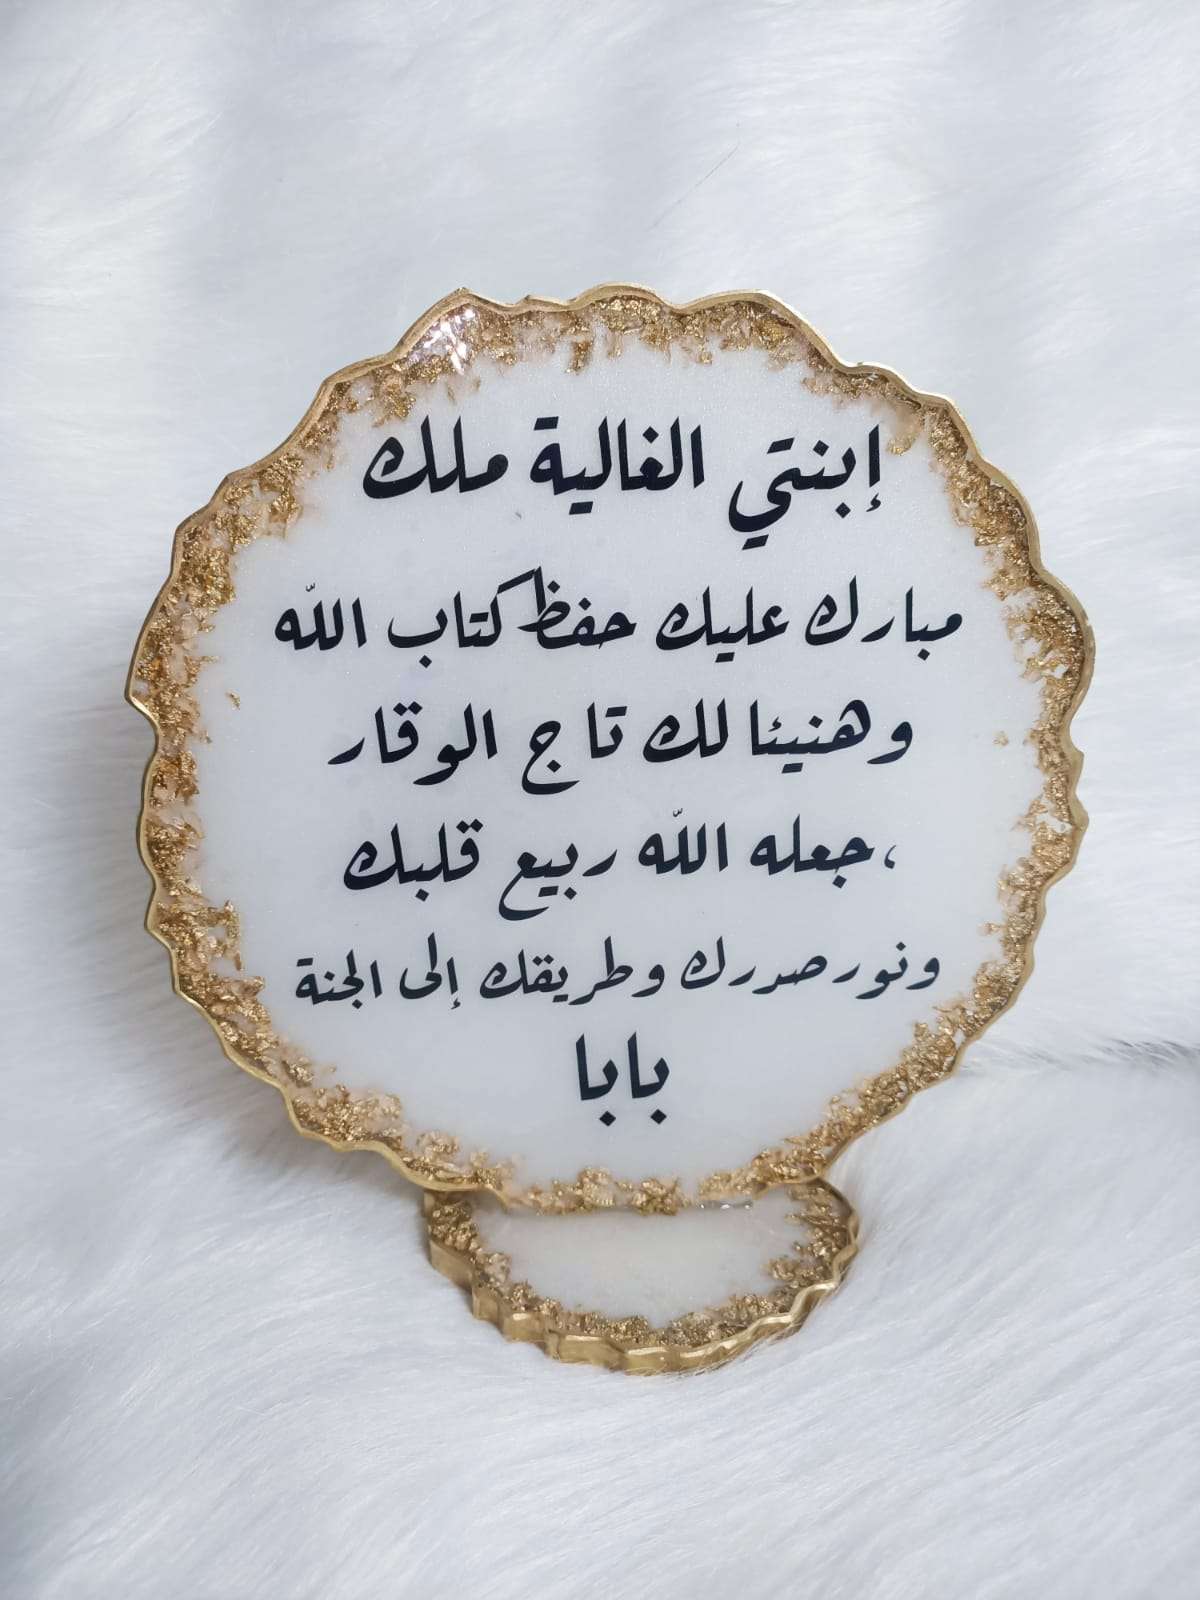 إبنتي الغالية ملك
مبارك عليك حفظ كتاب الله
وهنيئا لك تاج الوقار
،جعله الله ربيع قلبك
ونور صدرك وطريقك إلى الجنة
بابا